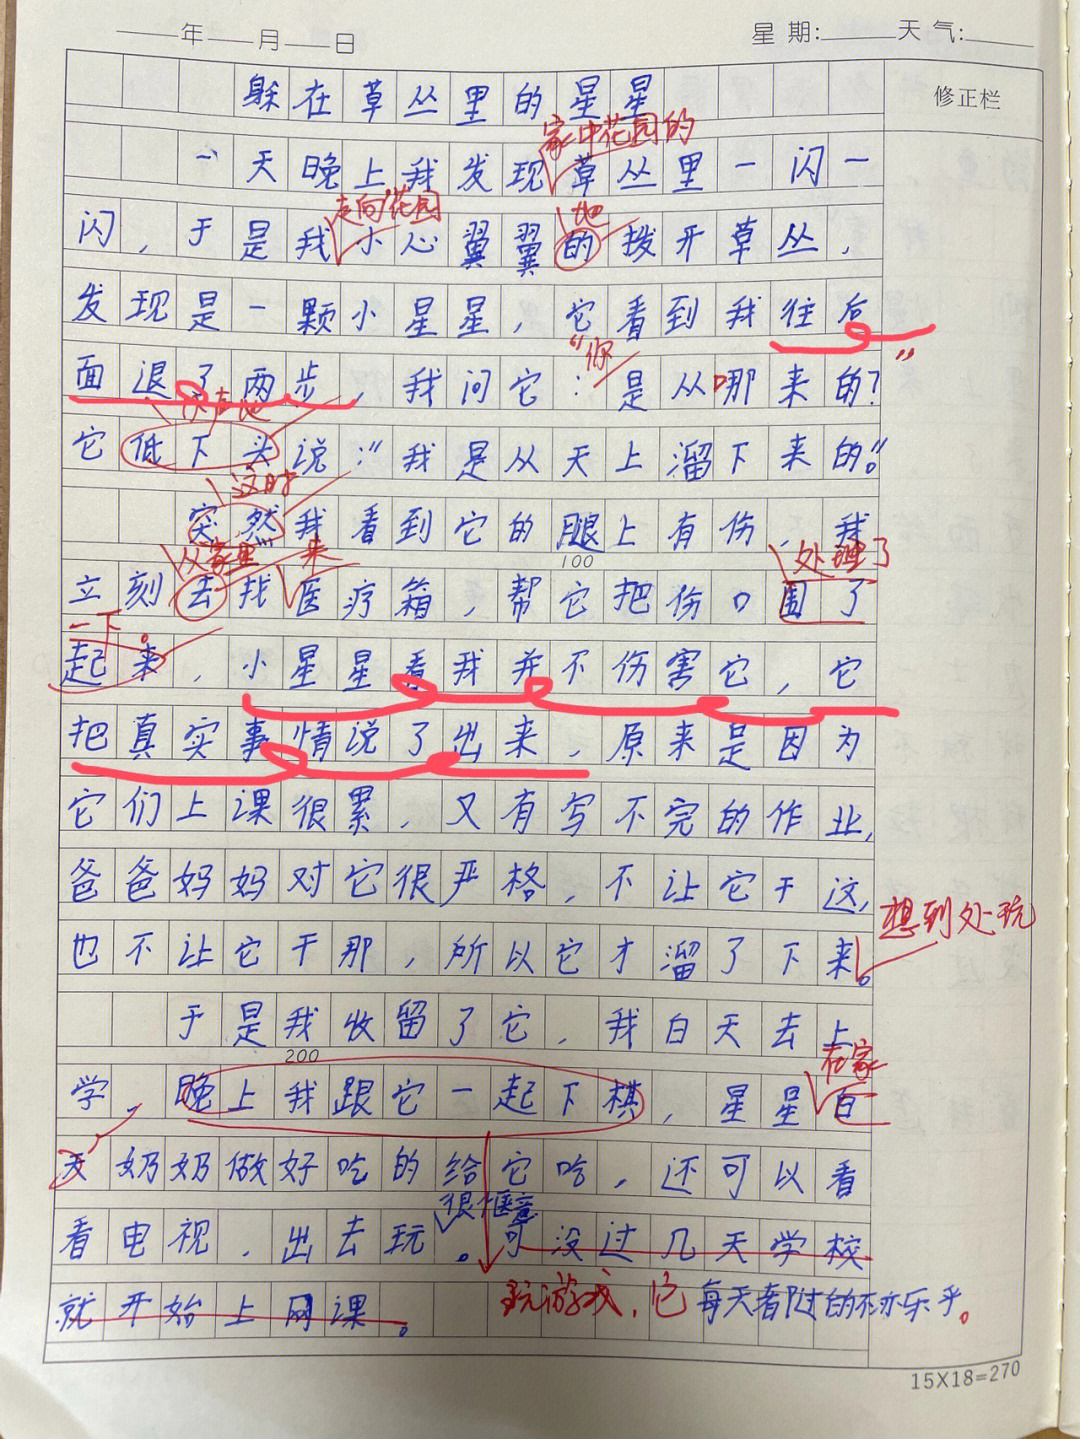 年 月 日 星期: 天气:
修正栏
躲在草丛里的星星
家中花园的
一天晚上我发现草丛里一闪一
走向花园 地
闪，于是我小心翼翼的拨开草丛，
发现是一颗小星星，它看到我往后
“你 ”
面退了两步，我问它：是从哪来的？
它低下头说：“我是从天上溜下来的。”
这时
突然我看到它的腿上有伤，我
从家里 来 处理了
立刻去找医疗箱，帮它把伤口围了
一下。
起来，小星星看我并不伤害它，它
把真实事情说了出来，原来是因为
它们上课很累，又有写不完的作业，
爸爸妈妈对它很严格，不让它干这，
想到处玩
也不让它干那，所以它才溜了下来。
于是我收留了它，我白天去上
在家
学，晚上我跟它一起下棋，星星白
天奶奶做好吃的给它吃，还可以看
很惬意
看电视，出去玩。可没过几天学校
就开始上网课。
玩游戏，它每天都过的不亦乐乎。
100
200
15X18=270